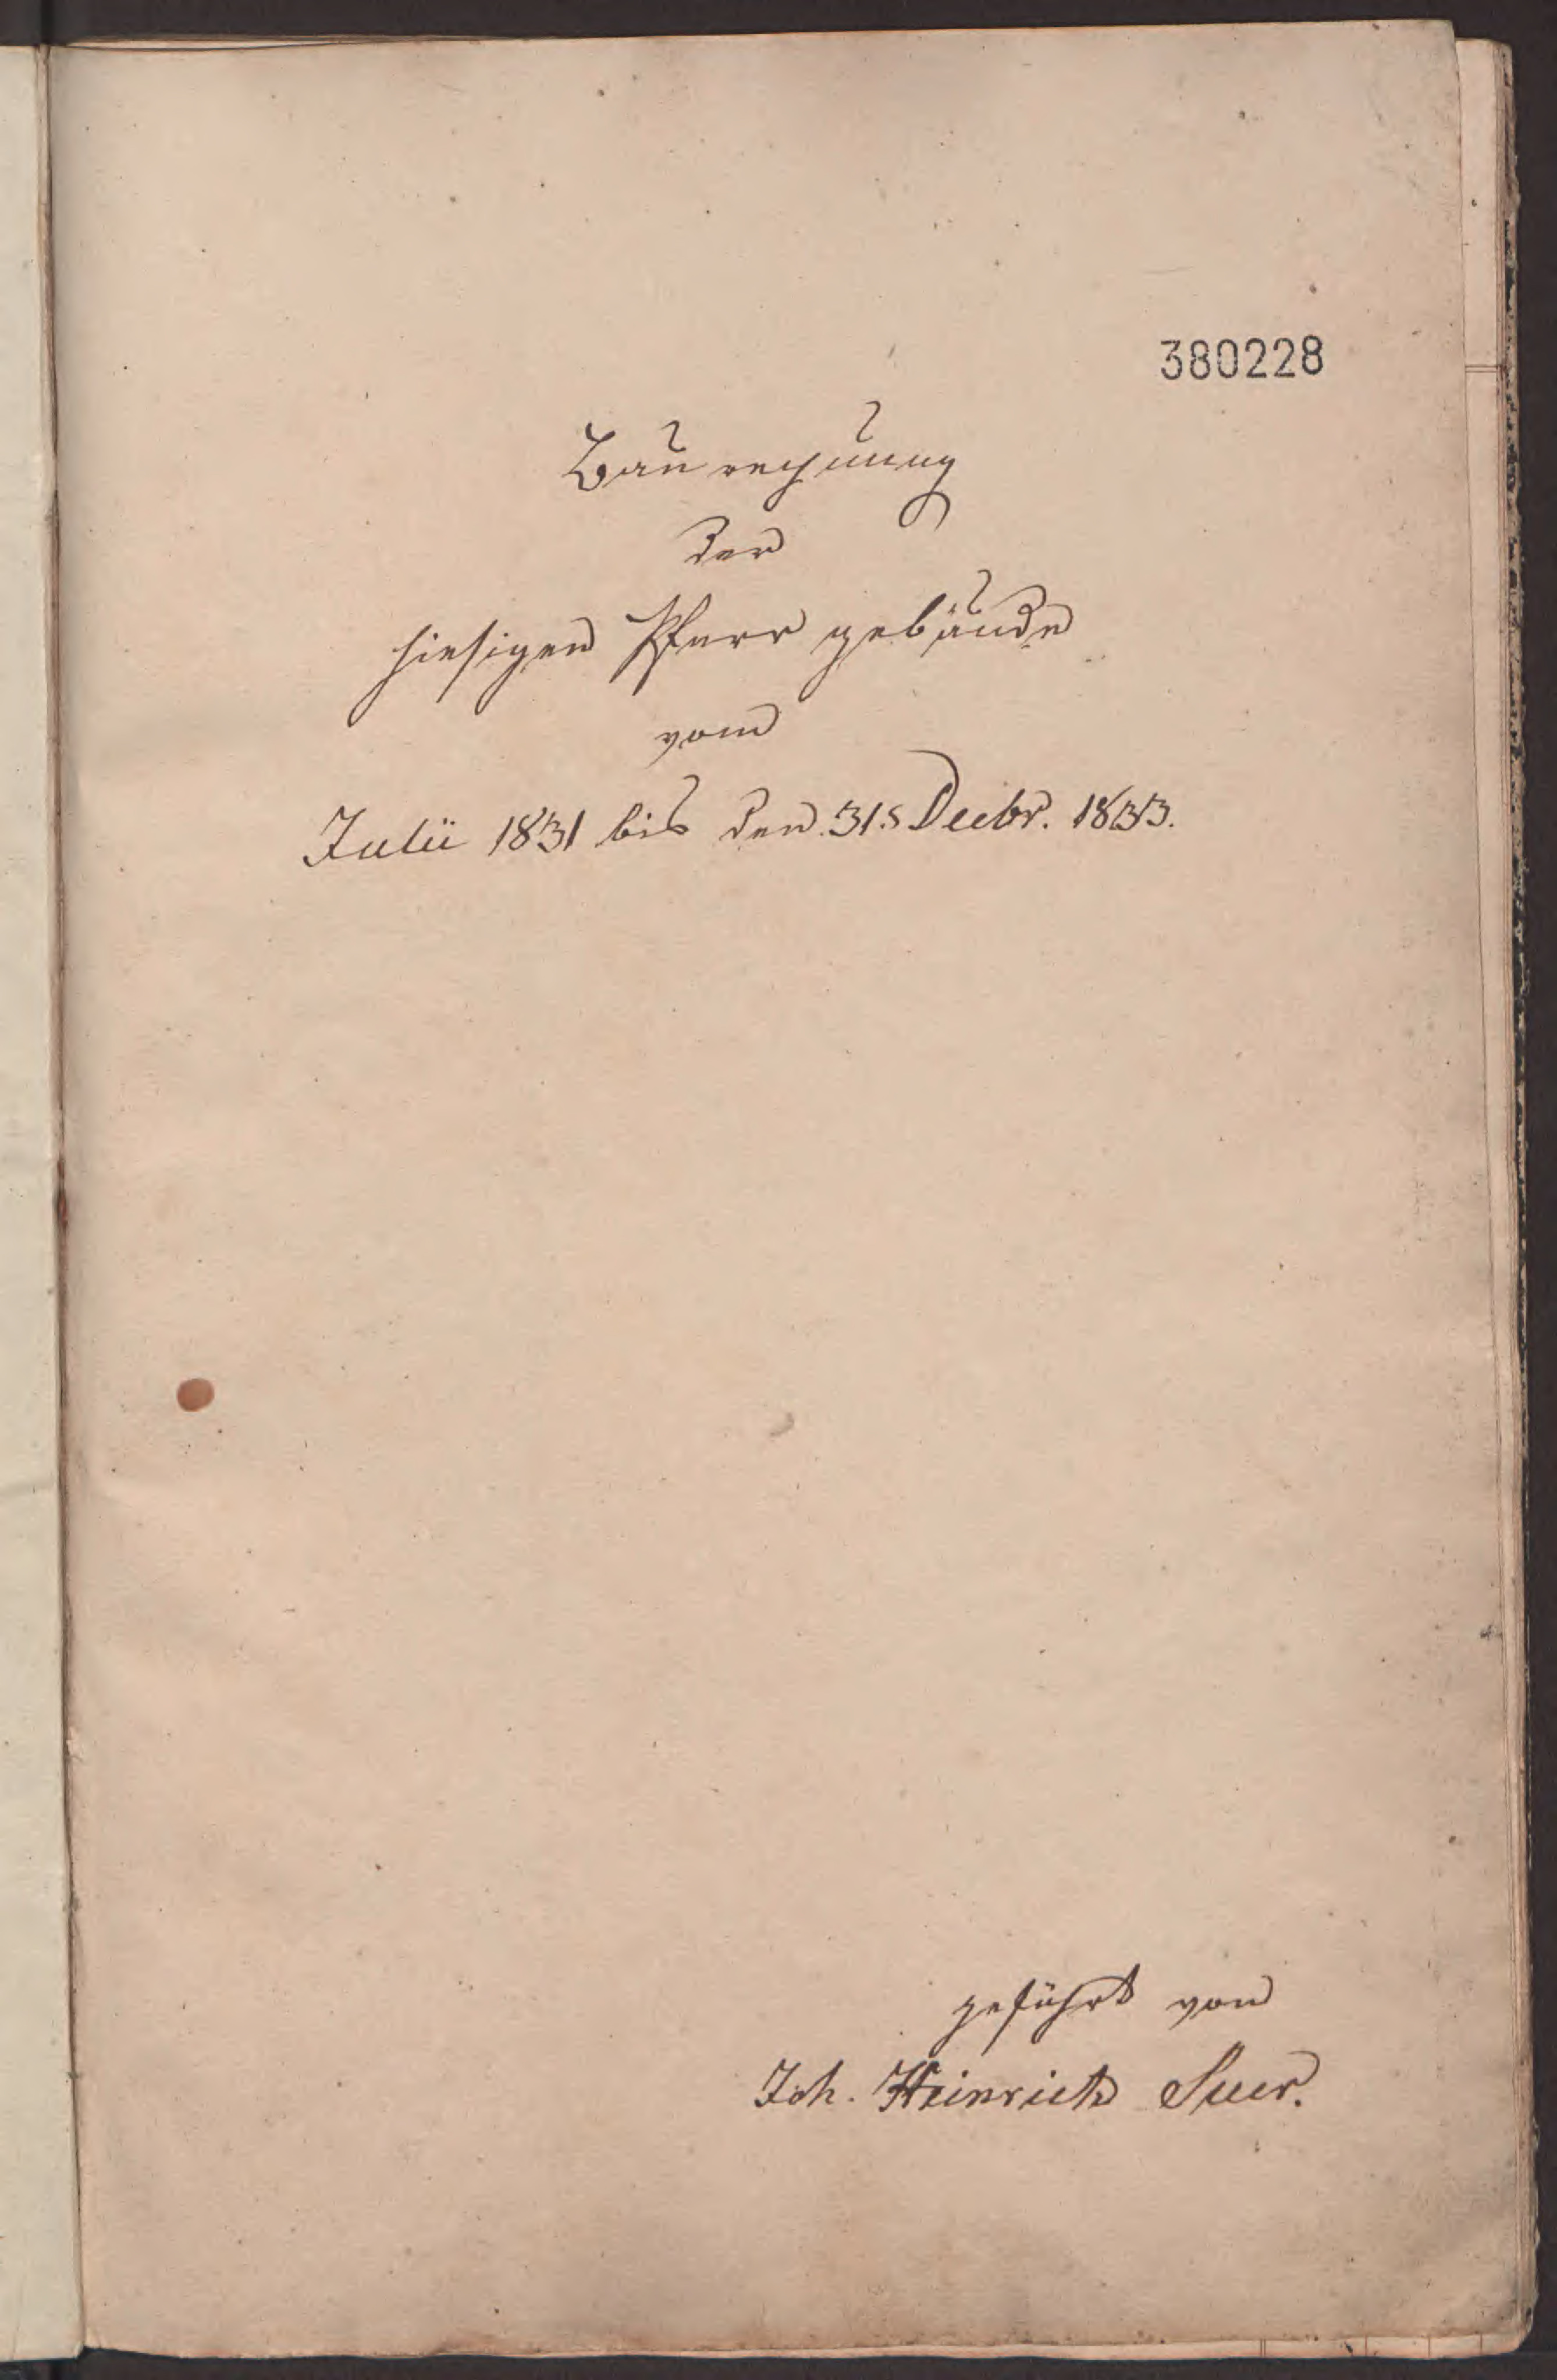 380228
Baurechnung
der
hiesigen Pfarr gebäude
vom
Julii 1831 bis den 31.s Decbr. 1833.
geführt von
Joh. Heinrich Suer.